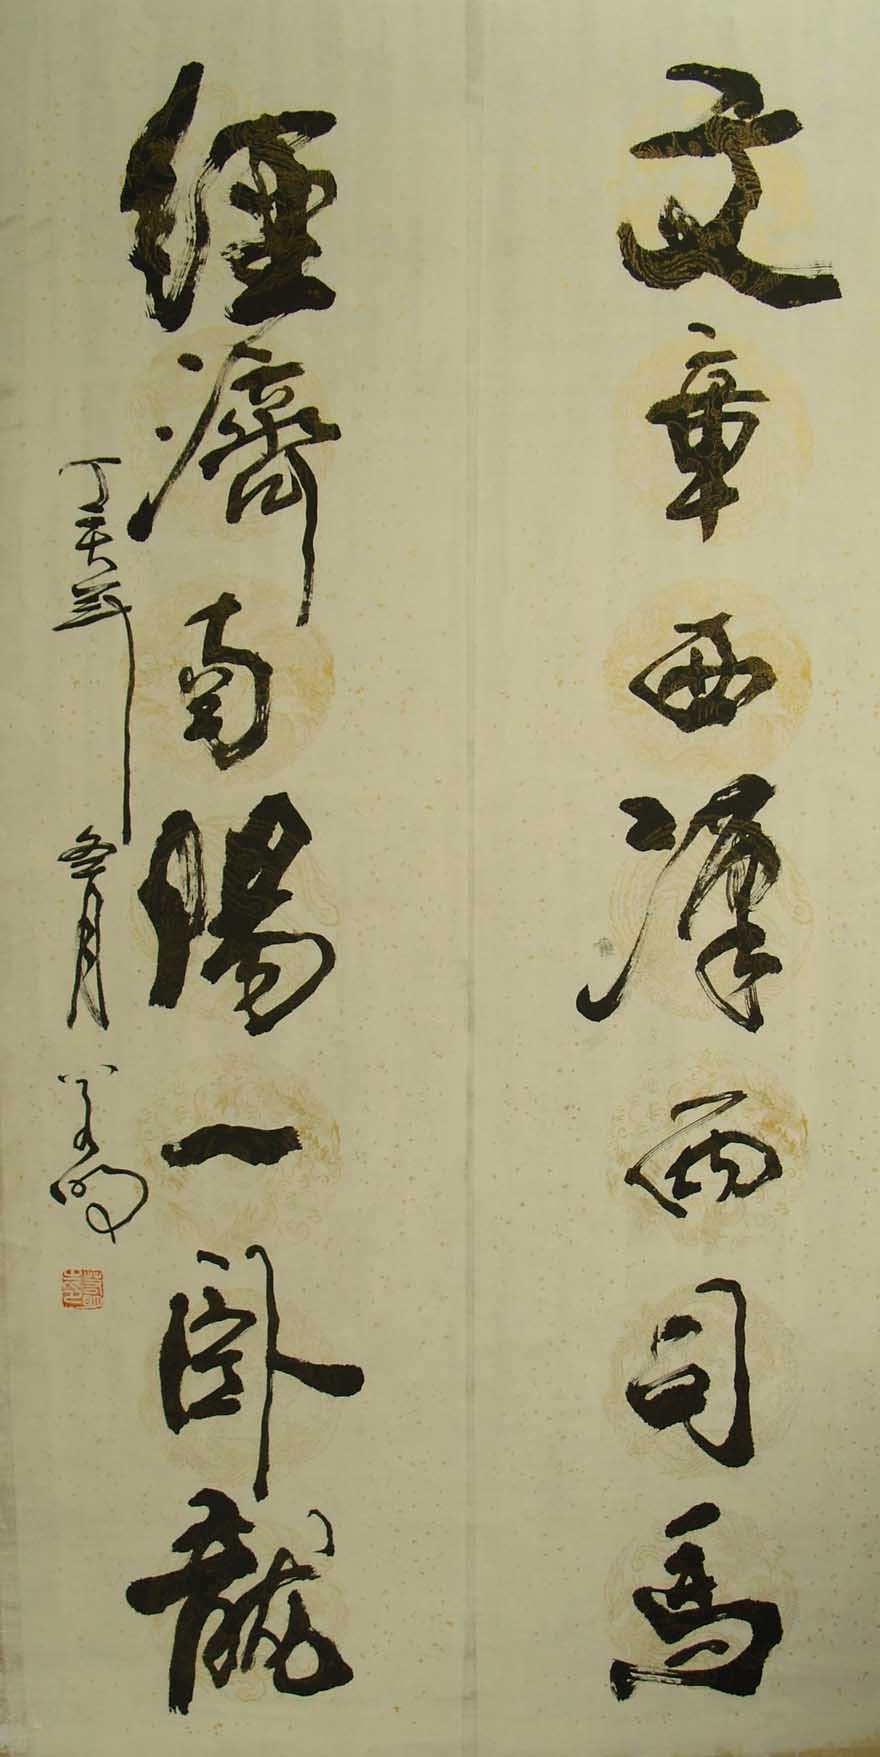 文章西漢兩司馬
經濟南陽一臥龍
丁亥年冬月